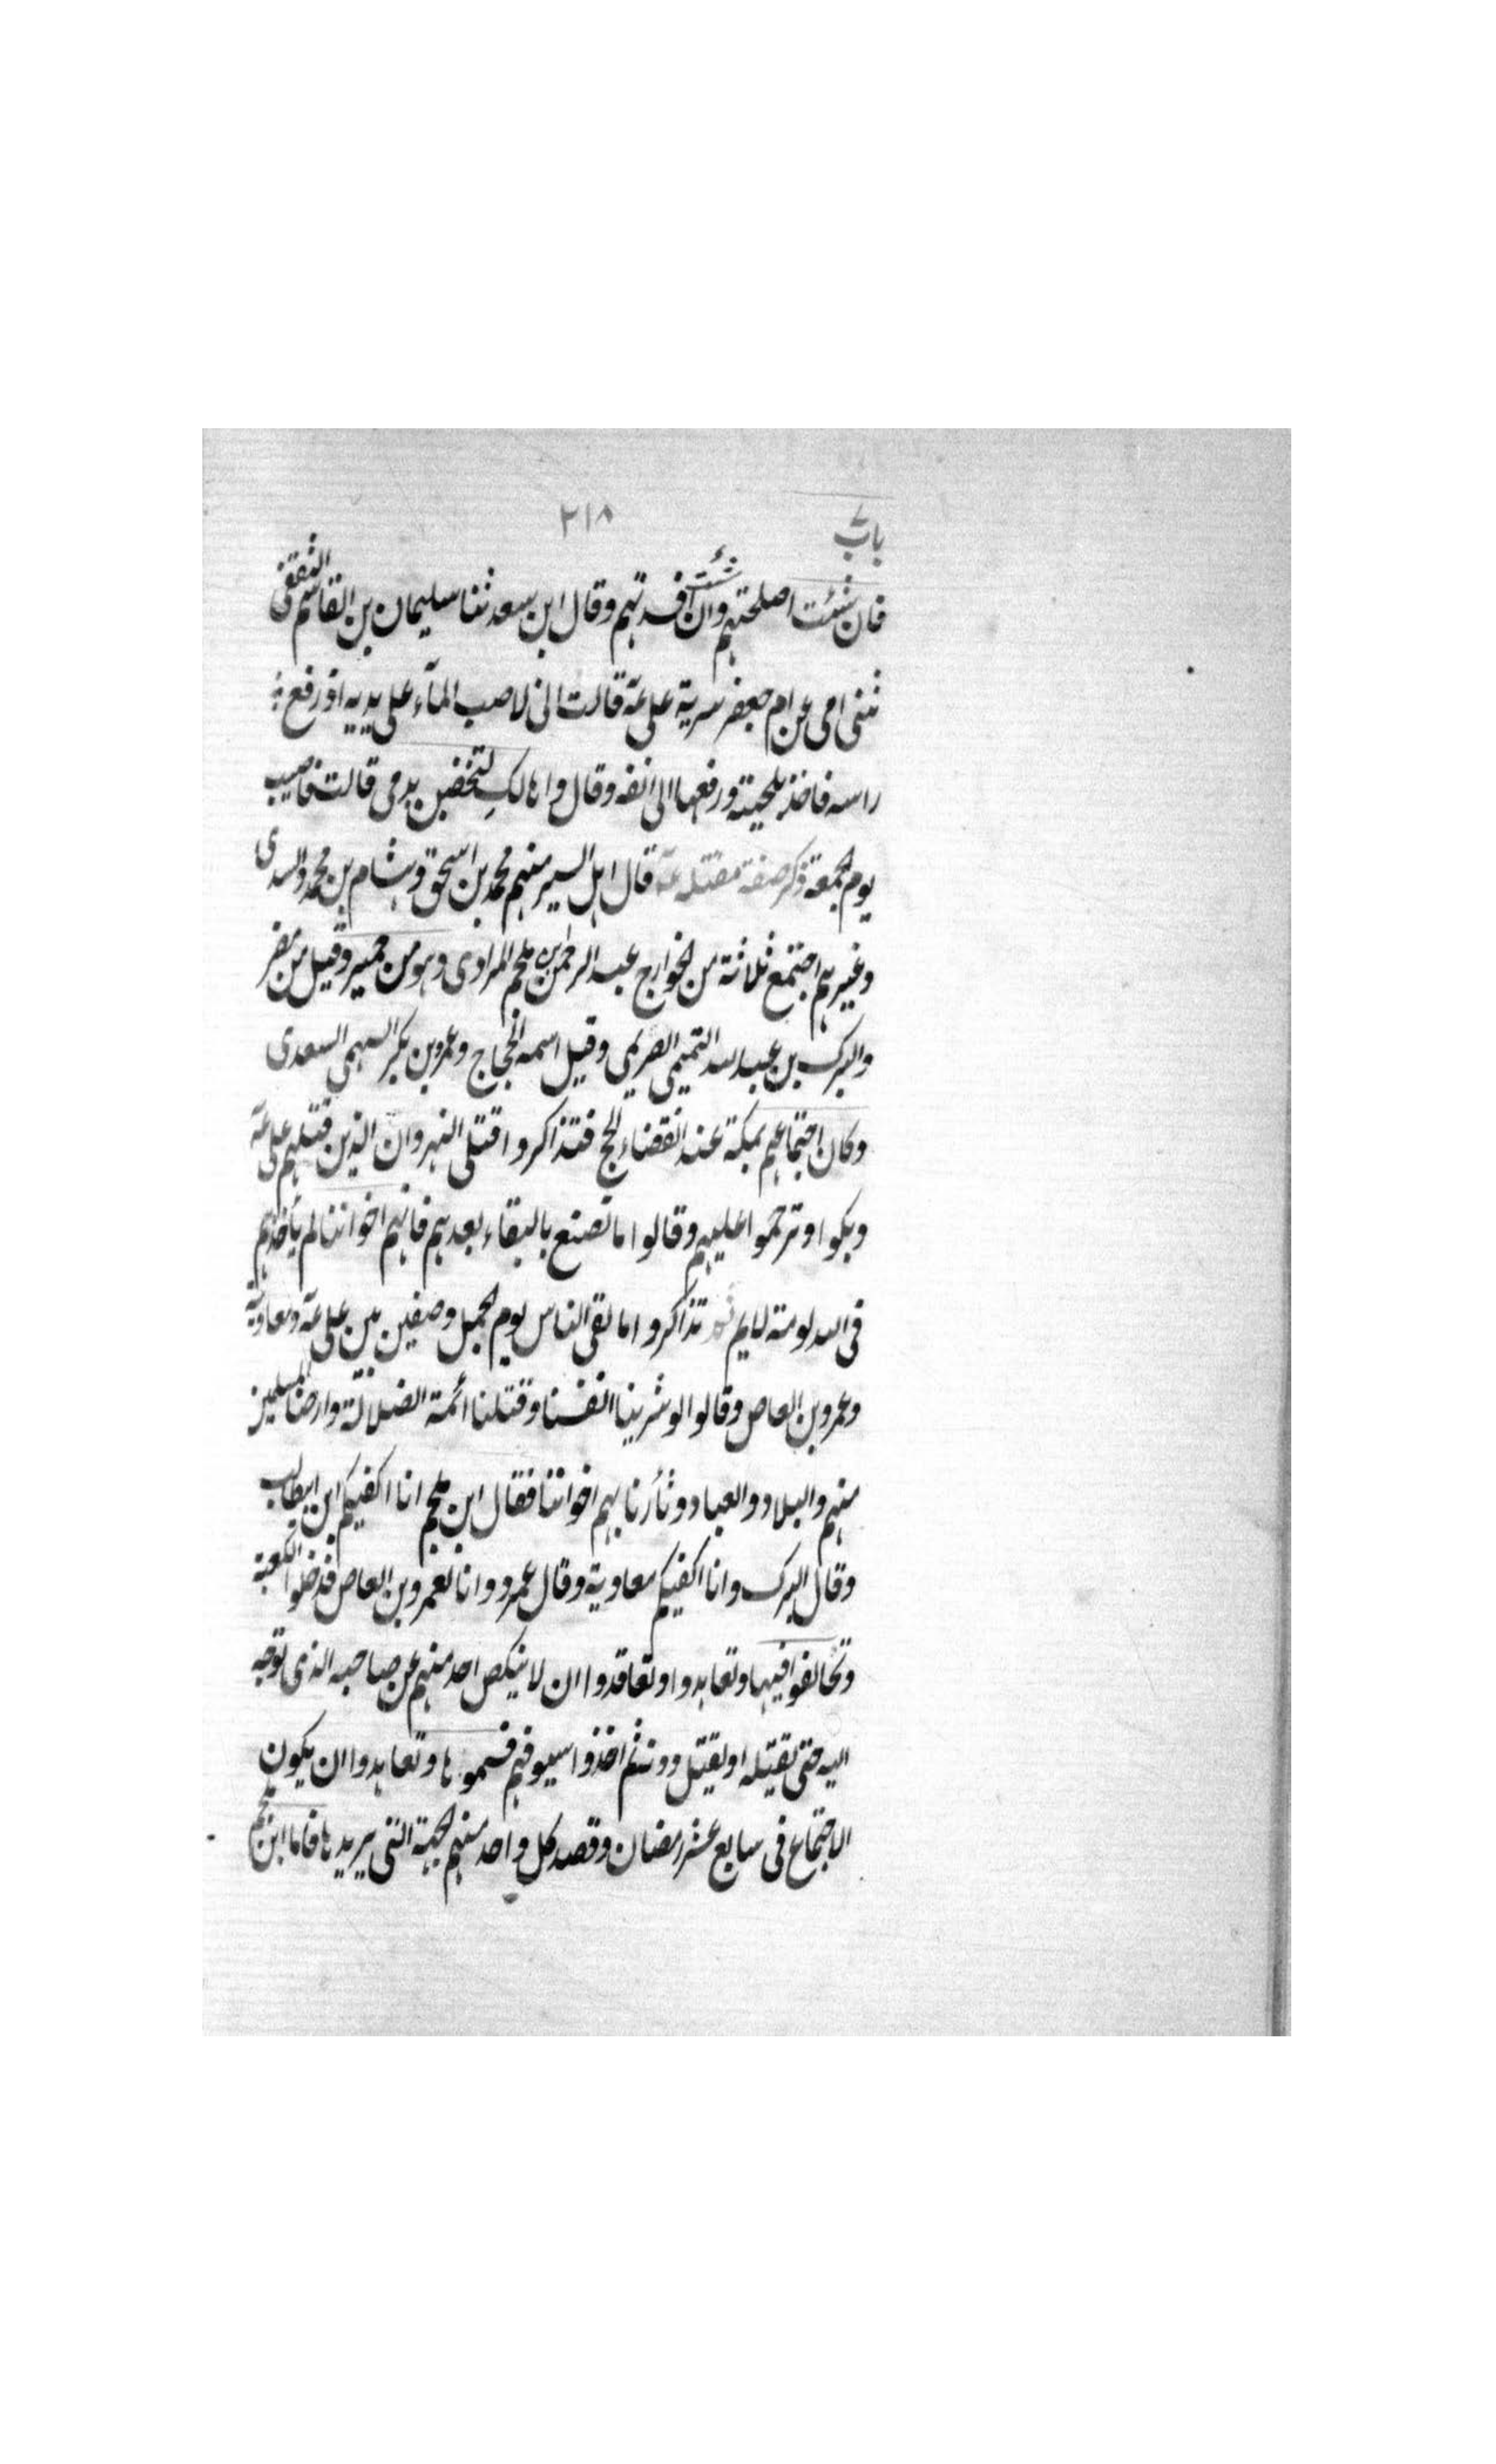 باب ٢١٨
فان شئت اصلحتهم وان شئت افسدتهم وقال ابن سعد ثنا سليمان بن القاسم الثقفى
ثنى امى عن ام جعفر سرية على عـ قالت انى لاصب المآء على يديه اذ رفع
راسه فاخذ بلحيته ورفعها الى انفه وقال واها لكِ لتخضبن بدمى قالت فاصيب
يوم الجمعة ذكر صفة مقتله عـ قال اهل السير منهم محمد بن اسحق وهشام بن محمد والسدى
وغيرهم اجتمع ثلاثة من الخوارج عبد الرحمن بن ملجم المرادى وهو من حمير وقيل من مضر
والبرك بن عبد الله التميمى الصريمى وقيل اسمه الحجاج وعمرو بن بكر السهمى السعدى
وكان اجتماعهم بمكة عند انقضاء الحج فتذاكروا قتلى النهروان الذين قتلهم على عـ
وبكوا وترحموا عليهم وقالوا ما نصنع بالبقاء بعدهم فانهم اخواننا لم يأخذهم
فى الله لومة لايم ثم تذاكروا ما لقى الناس يوم الجمل وصفين من على عـ ومعاوية
وعمرو بن العاص وقالوا لو شرينا انفسنا وقتلنا ائمة الضلالة وارحنا المسلمين
منهم والبلاد والعباد وثأرنا بهم اخواننا فقال ابن ملجم انا اكفيكم ابن ابيطالب
وقال البرك وانا اكفيكم معاوية وقال عمرو وانا لعمرو بن العاص فدخلوا الكعبة
وتحالفوا فيها وتعاهدوا وتعاقدوا ان لا ينكص احد منهم عن صاحبه الذى توجه
اليه حتى يقتله او يقتل دونه ثم اخذوا سيوفهم فسموها وتعاهدوا ان يكون
الاجتماع فى سابع عشر رمضان وقصد كل واحد منهم الجهة التى يريدها فاما ابن ملجم